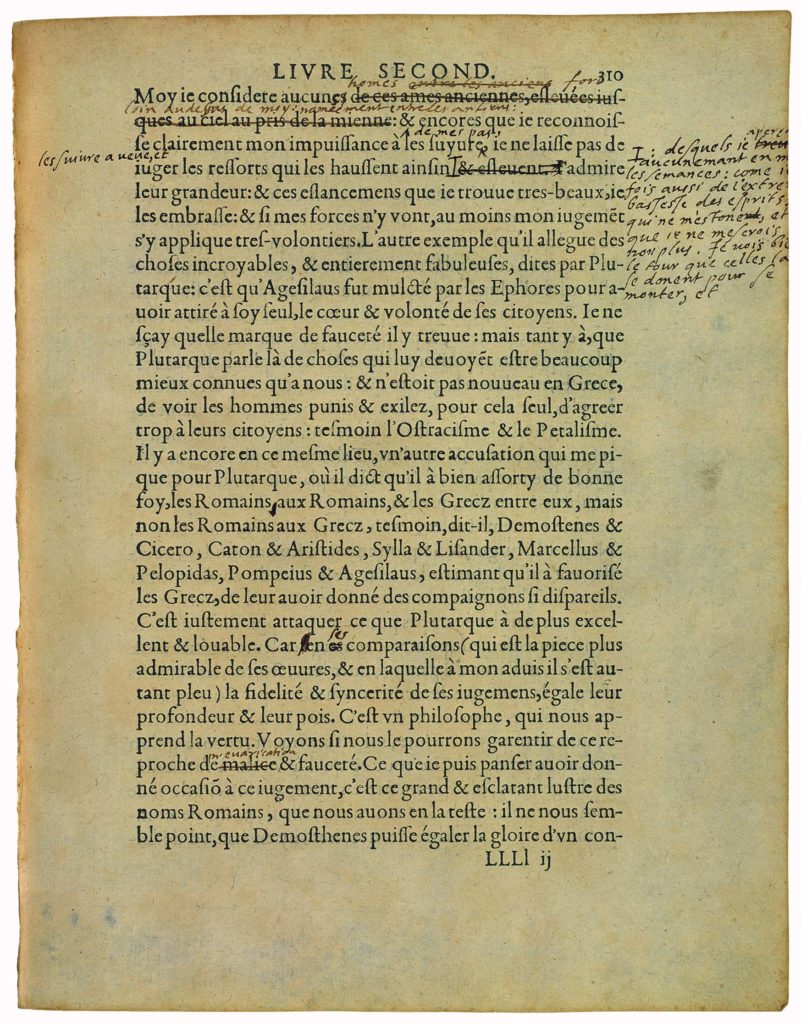 LIVRE SECOND. 310
homes outre les anciens fort
Moy ie considere aucunes de ces ames anciennes, esleuées ius-
loin audessus de moy: nomeement entre les antiens:
ques au ciel au pris de la mienne: & encores que ie reconnois-
de mes pas
se clairement mon impuissance à les suyure, ie ne laisse pas de
les suivre a veue, et
iuger les ressorts qui les haussent ainsin, & esleuent. admire
leur grandeur: & ces eslancemens que ie trouue tres-beaux, ie
les embrasse: & si mes forces n'y vont, au moins mon iugemẽt
s'y applique tres-volontiers. L'autre exemple qu'il allegue des
choses incroyables, & entierement fabuleuses, dites par Plu-
tarque: c'est qu'Agesilaus fut mulcté par les Ephores pour a-
desquels ie
aucunemant en m
les semances: come i
fois aussi de l'extre
bassesse des esprits,
qui ne mestonent, et
que ie ne mescrois
non plus. Je vois bi
le tour que celles la
se donent pour se
monter, et
uoir attiré à soy seul, le cœur & volonté de ses citoyens. Ie ne
sçay quelle marque de fauceté il y treuue: mais tant y à, que
Plutarque parle là de choses qui luy deuoyẽt estre beaucoup
mieux connues qu'a nous: & n'estoit pas nouueau en Grece,
de voir les hommes punis & exilez, pour cela seul, d'agreer
trop à leurs citoyens: tesmoin l'Ostracisme & le Petalisme.
Il y a encore en ce mesme lieu, vn'autre accusation qui me pi-
que pour Plutarque, où il dict qu'il à bien assorty de bonne
foy, les Romains aux Romains, & les Grecz entre eux, mais
non les Romains aux Grecz, tesmoin, dit-il, Demostenes &
Cicero, Caton & Aristides, Sylla & Lisander, Marcellus &
Pelopidas, Pompeius & Agesilaus, estimant qu'il à fauorisé
les Grecz, de leur auoir donné des compaignons si dispareils.
C'est iustement attaquer ce que Plutarque à de plus excel-
ses
lent & louable. Car en ces comparaisons (qui est la piece plus
admirable de ses œuures, & en laquelle à mon aduis il s'est au-
tant pleu) la fidelité & syncerité de ses iugemens, égale leur
profondeur & leur pois. C'est vn philosophe, qui nous ap-
prend la vertu. Voyons si nous le pourrons garentir de ce re-
prevarication
proche de malice & fauceté. Ce que ie puis panser auoir don-
né occasiõ à ce iugement, c'est ce grand & esclatant lustre des
noms Romains, que nous auons en la teste: il ne nous sem-
ble point, que Demosthenes puisse égaler la gloire d'vn con-
LLLl ij